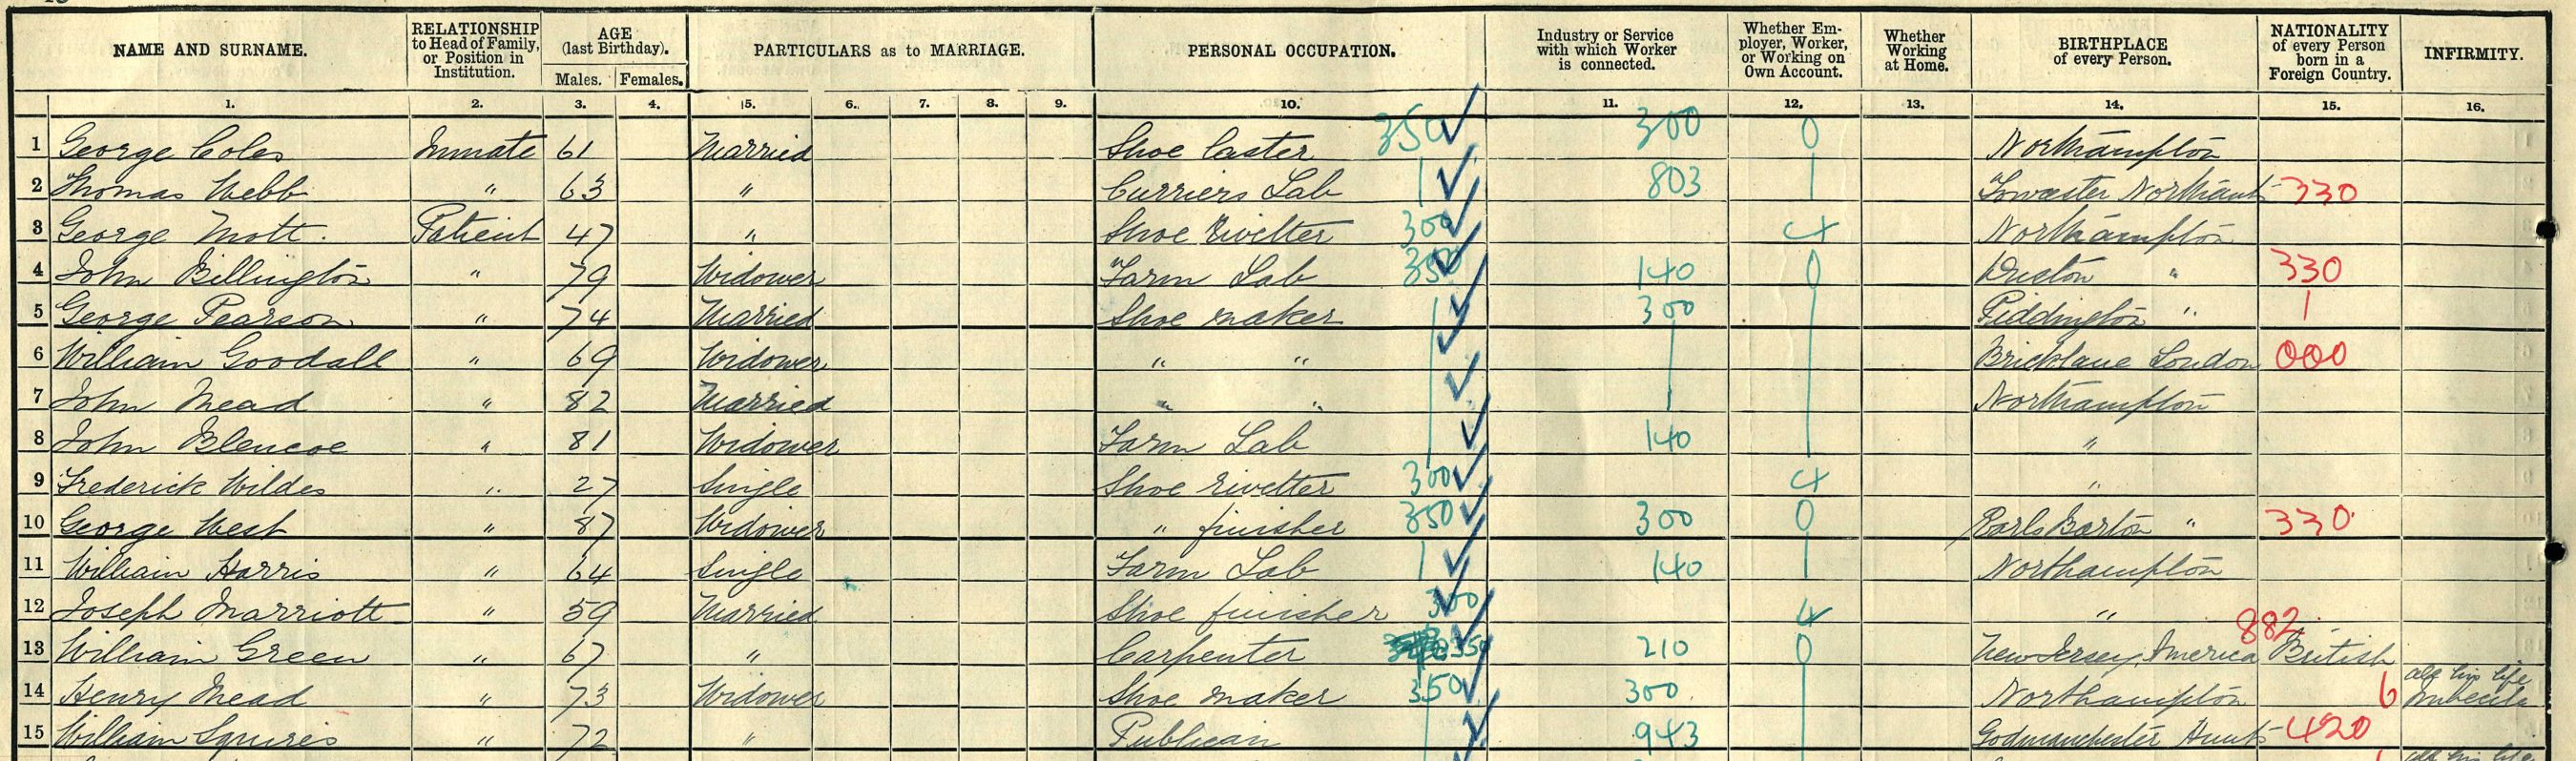 NAME AND SURNAME. RELATIONSHIP to Head of Family, or Position in Institution. AGE (last Birthday). Males. Females. PARTICULARS as to MARRIAGE. PERSONAL OCCUPATION. Industry or Service with which Worker is connected. Whether Employer, Worker, or Working on Own Account. Whether Working at Home. BIRTHPLACE of every Person. NATIONALITY of every Person born in a Foreign Country. INFIRMITY.
1. 2. 3. 4. 5. 6. 7. 8. 9. 10. 11. 12. 13. 14. 15. 16.
1 George Coles Inmate 61 Married Shoe Laster 350 300 0 Northampton
2 Thomas Webb " 63 " Curriers Lab 803 Towcester Northants 330
3 George Mott. Patient 47 " Shoe Rivetter 300 4 Northampton
4 John Billington " 79 Widower Farm Lab 350 140 0 Duston " 330
5 George Pearson " 74 Married Shoe maker 300 Piddington "
6 William Goodall " 69 Widower " " Bricklane London 000
7 John Mead " 82 Married " " Northampton
8 John Blencoe " 81 Widower Farm Lab 140 "
9 Frederick Wildes " 27 Single Shoe rivetter 300 4 "
10 George West " 87 Widower " finisher 350 300 0 Earls Barton " 330
11 William Harris " 64 Single Farm Lab 140 Northampton
12 Joseph Marriott " 59 Married Shoe finisher 300 4 "
13 William Green " 67 " Carpenter 350 210 0 New Jersey, America 882 British
14 Henry Mead " 73 Widower Shoe maker 350 300 Northampton 6 all his life Imbecile
15 William Squires " 72 " Publican 943 Godmanchester Hunts 420